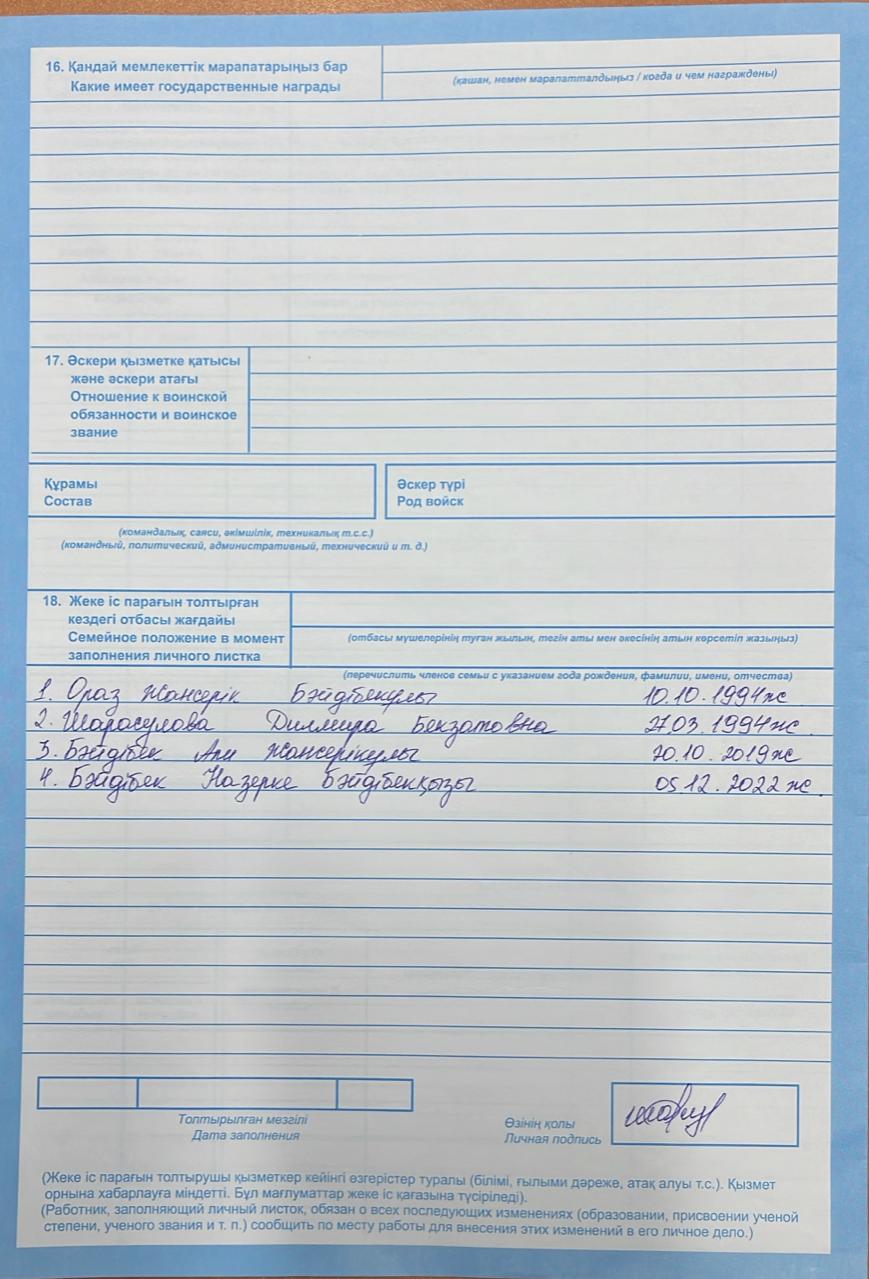 16. Қандай мемлекеттік марапатарыңыз бар
Какие имеет государственные награды
(қашан, немен марапатталдыңыз / когда и чем награждены)
17. Әскери қызметке қатысы
және әскери атағы
Отношение к воинской
обязанности и воинское
звание
Құрамы
Состав
Әскер түрі
Род войск
(командалық, саяси, әкімшілік, техникалық т.с.с.)
(командный, политический, административный, технический и т. д.)
18. Жеке іс парағын толтырған
кездегі отбасы жағдайы
Семейное положение в момент
заполнения личного листка
(отбасы мүшелерінің туған жылын, тегін аты мен әкесінің атын көрсетіп жазыңыз)
(перечислить членов семьи с указанием года рождения, фамилии, имени, отчества)
1. Ораз Жансерік Бәйдібекұлы 10.10.1994ж
2. Шарасулова Дилмира Бекзатовна 27.03.1994ж.
3. Бәйдібек Али Жансерікұлы 20.10.2019ж
4. Бәйдібек Назерке Бәйдібекқызы 05.12.2022 ж.
Толтырылған мезгілі
Дата заполнения
Өзінің қолы
Личная подпись
(Жеке іс парағын толтырушы қызметкер кейінгі өзгерістер туралы (білімі, ғылыми дәреже, атақ алуы т.с.). Қызмет
орнына хабарлауға міндетті. Бұл мағлуматтар жеке іс қағазына түсіріледі).
(Работник, заполняющий личный листок, обязан о всех последующих изменениях (образовании, присвоении ученой
степени, ученого звания и т. п.) сообщить по месту работы для внесения этих изменений в его личное дело.)